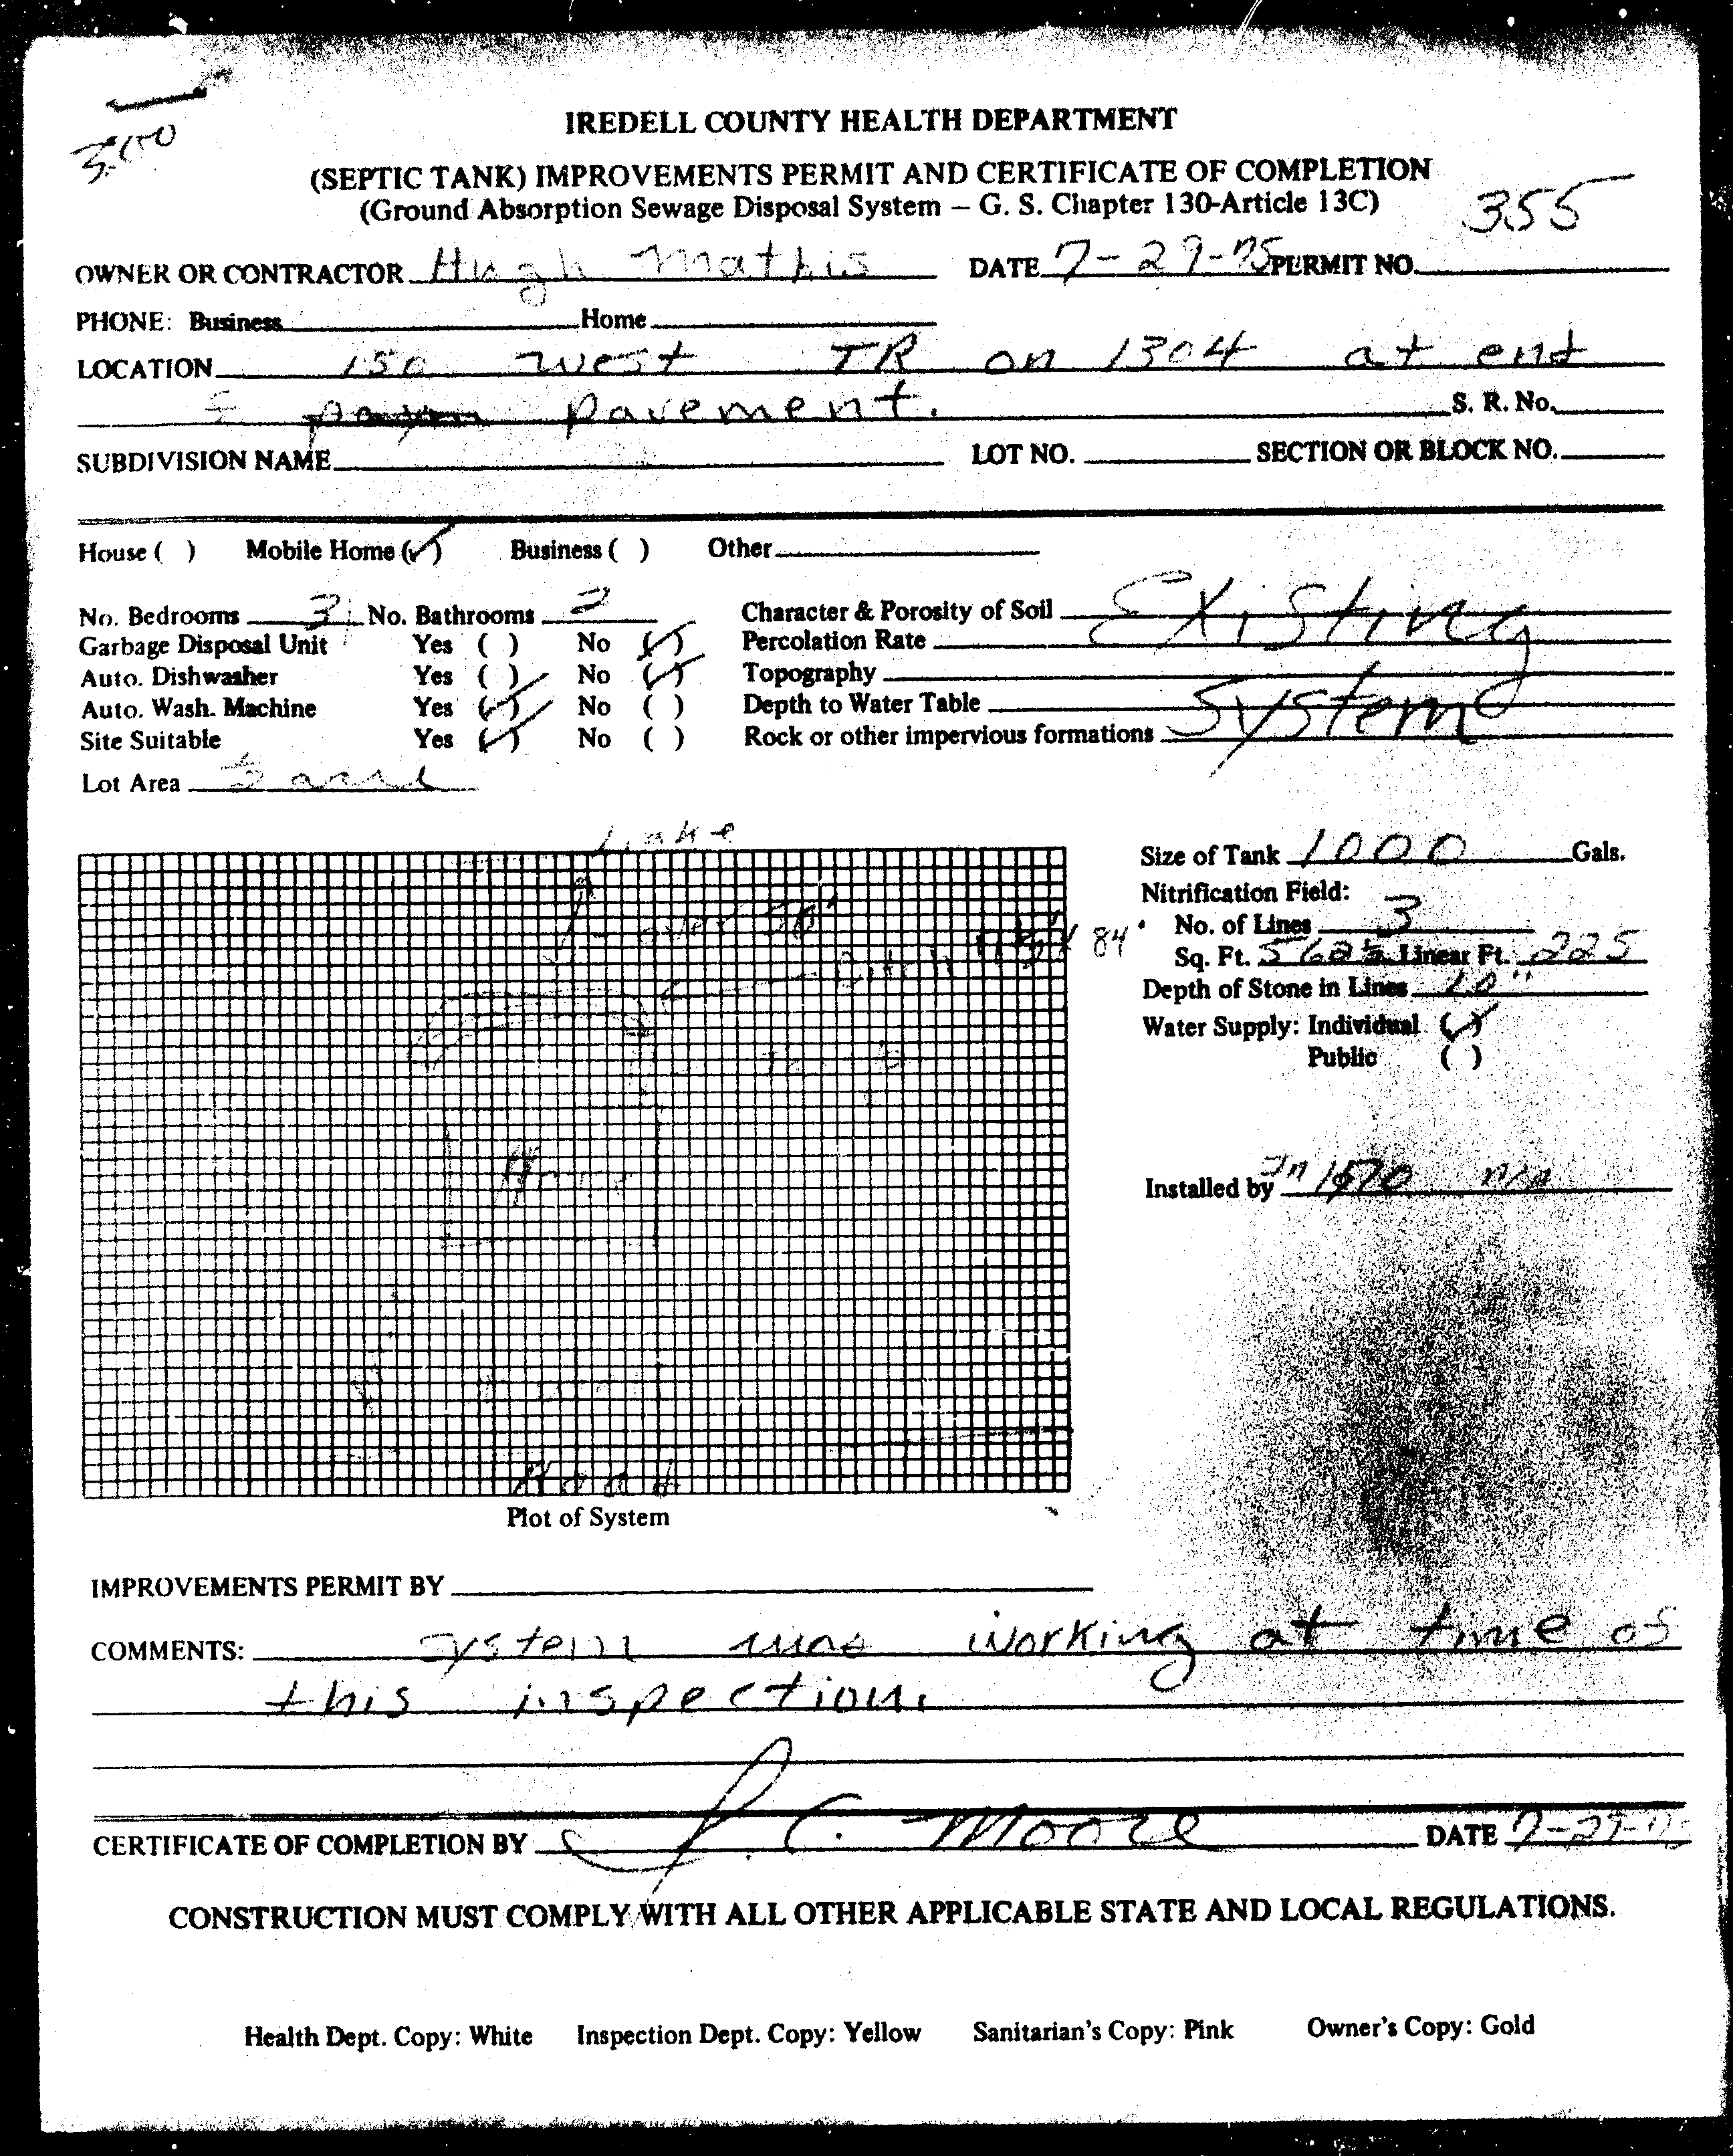 3.00
IREDELL COUNTY HEALTH DEPARTMENT
(SEPTIC TANK) IMPROVEMENTS PERMIT AND CERTIFICATE OF COMPLETION
(Ground Absorption Sewage Disposal System – G. S. Chapter 130-Article 13C)
355
OWNER OR CONTRACTOR Hugh Mathis DATE 7-29-75 PERMIT NO.
PHONE: Business Home
LOCATION 150 West TR on 1304 at end
pavement. S. R. No.
SUBDIVISION NAME LOT NO. SECTION OR BLOCK NO.
House ( ) Mobile Home (✓) Business ( ) Other
No. Bedrooms 3 No. Bathrooms 2 Character & Porosity of Soil Existing
Garbage Disposal Unit Yes ( ) No (✓) Percolation Rate
Auto. Dishwasher Yes ( ) No (✓) Topography
Auto. Wash. Machine Yes (✓) No ( ) Depth to Water Table System
Site Suitable Yes (✓) No ( ) Rock or other impervious formations
Lot Area
Lake
over 50'
Ditch
84'
Home
Road
Plot of System
Size of Tank 1000 Gals.
Nitrification Field:
No. of Lines 3
Sq. Ft. Linear Ft. 225
Depth of Stone in Lines
Water Supply: Individual (✓)
Public ( )
Installed by In 1970 n/a
IMPROVEMENTS PERMIT BY
COMMENTS: System was working at time of
this inspection.
CERTIFICATE OF COMPLETION BY C. Moore DATE 7-29-75
CONSTRUCTION MUST COMPLY WITH ALL OTHER APPLICABLE STATE AND LOCAL REGULATIONS.
Health Dept. Copy: White Inspection Dept. Copy: Yellow Sanitarian's Copy: Pink Owner's Copy: Gold